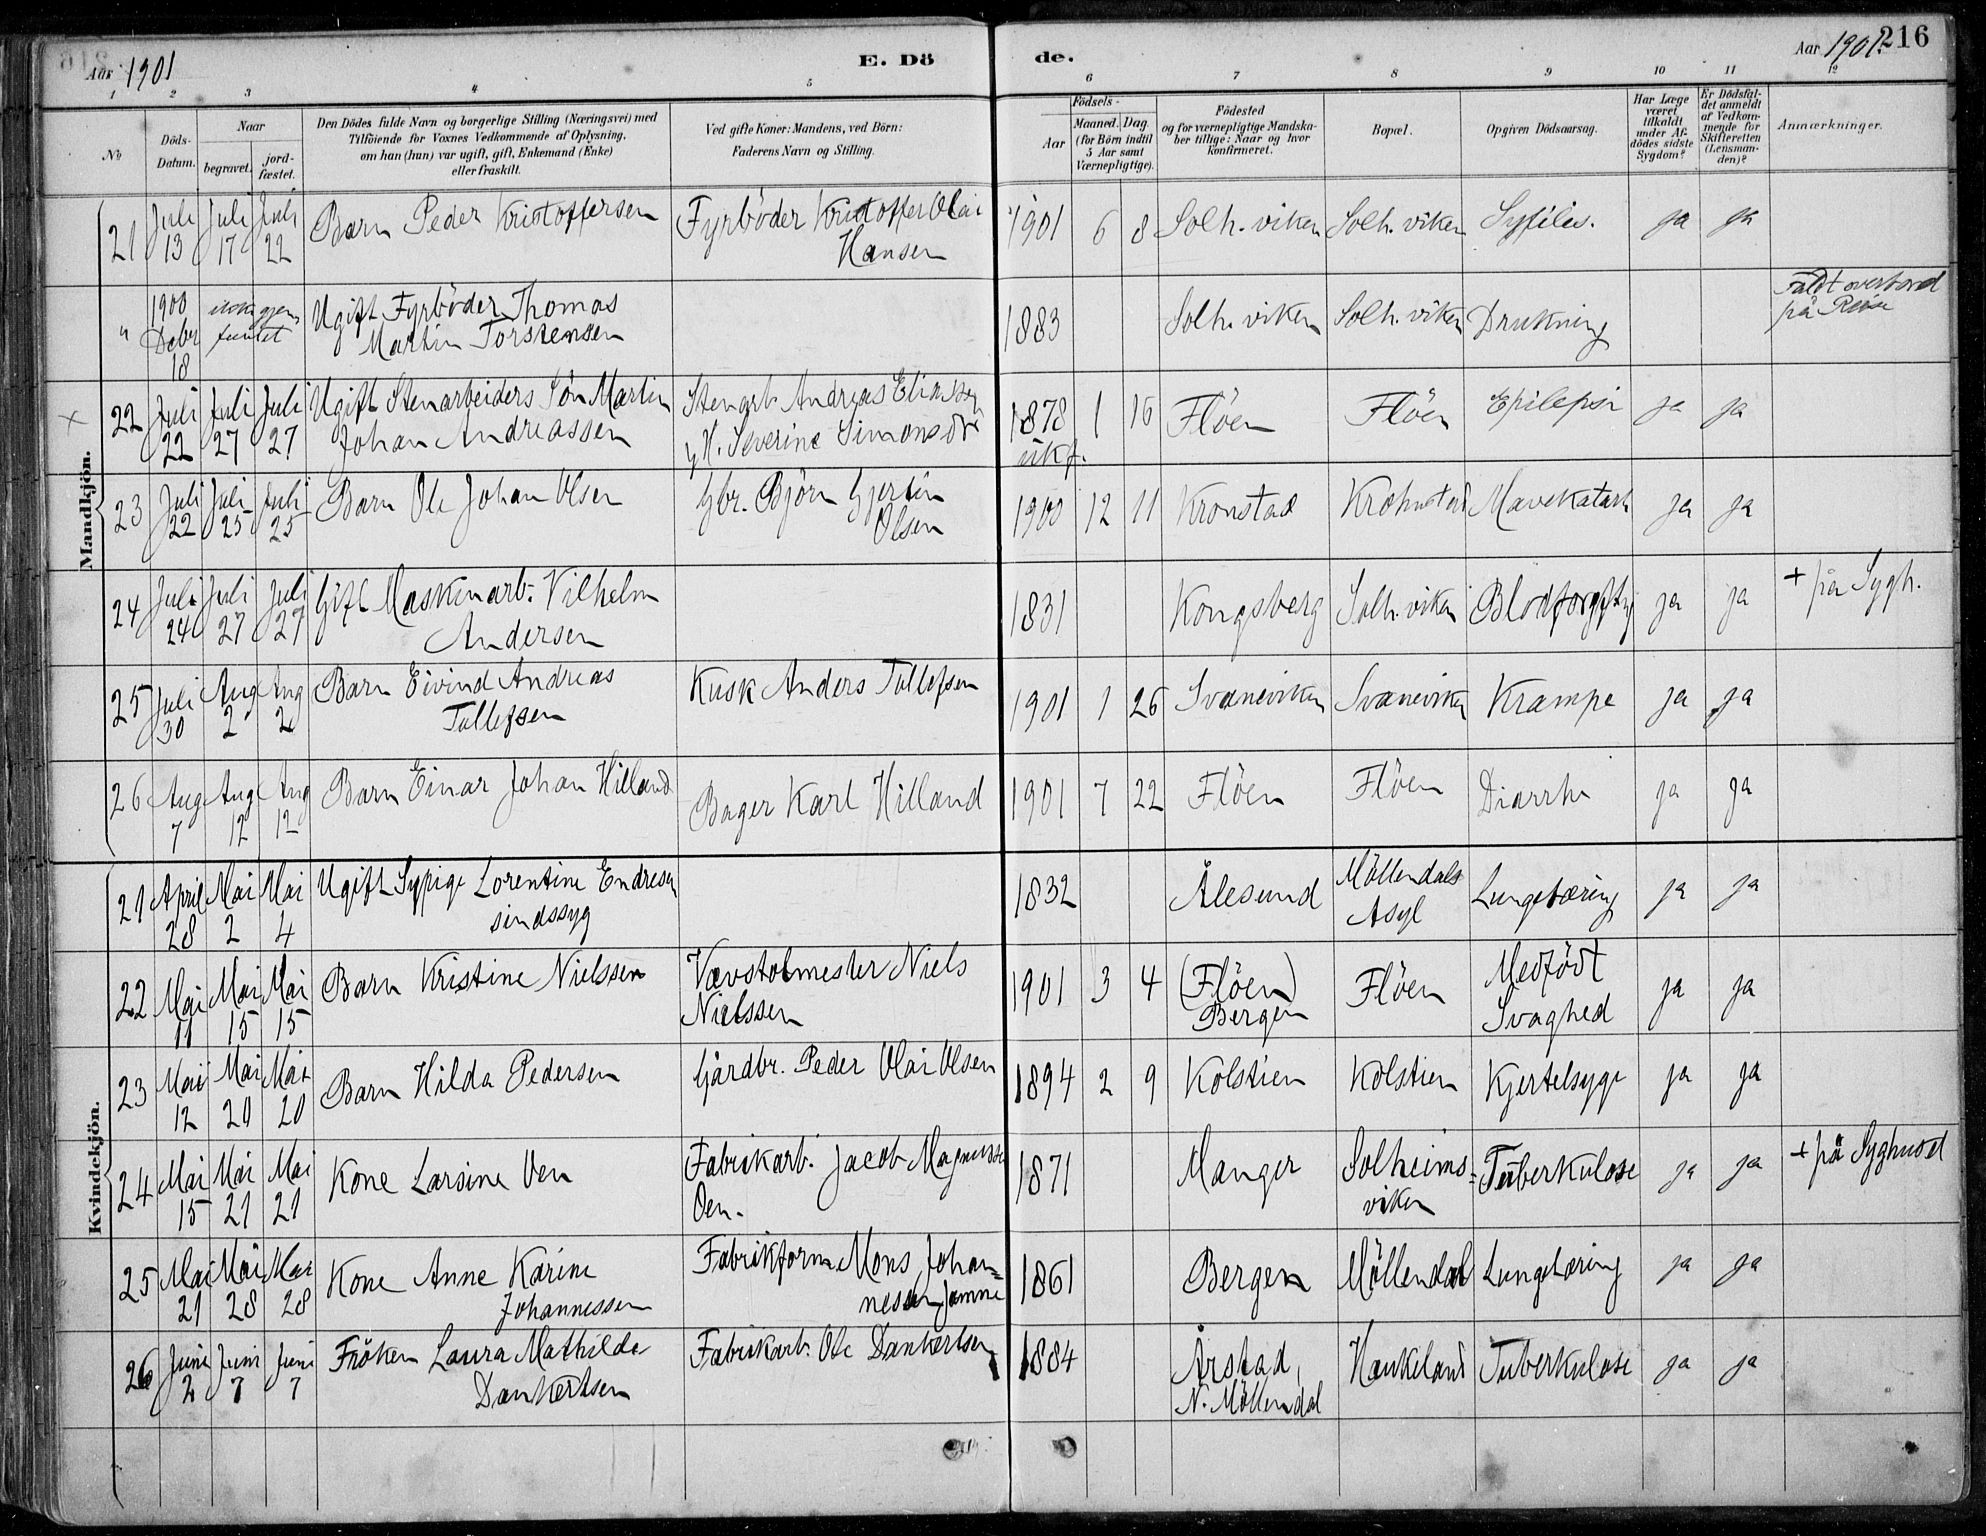 Aar 1901
E. Dö
de.
Aar 1901.
216
1 2 3 4 5 6 7 8 9 10 11 12
No
Döds-Datum.
Naar
begravet.
jord-fæstet.
Den Dödes fulde Navn og borgerlige Stilling (Næringsvei) med
Tilföiende for Voxnes Vedkommende af Oplysning,
om han (hun) var ugift, gift, Enkemand (Enke)
eller fraskilt.
Ved gifte Koner: Mandens, ved Börn:
Faderens Navn og Stilling.
Födsels-
Aar
Maaned. Dag
(for Börn indtil
5 Aar samt
Værnepligtige).
Födested
og for værnepligtige Mandska-
ber tillige: Naar og hvor
konfirmeret.
Bopæl.
Opgiven Dödsaarsag.
Har Læge
været
tilkaldt
under Af-
dödes sidste
Sygdom?
Er Dödsfal-
det anmeldt
af Vedkom-
mende for
Skifteretten
(Lensman-
den)?
Anmærkninger.
Mandkjön.
21 Juli 13 Juli 17 Juli 22 Barn Peder Kristoffersen Fyrböder Kristoffer Olai Hansen 1901 6 8 Solh. viken Solh. viken Syfilis. ja ja
" 1900 Debr 18 ikke gjenfundet Ugift Fyrböder Thomas Martin Torstensen 1883 Solh. viken Solh. viken Drukning Faldt overbord på Reise
x 22 Juli 22 Juli 27 Juli 27 Ugift Stenarbeiders Sön Martin Johan Andreassen Stenarb. Andreas Eliassen H. Severine Simonsdtr 1878 1 16 Flöen Flöen Epilepsi ja ja
23 Juli 22 Juli 25 Juli 25 Barn Ole Johan Olsen Gbr. Björn Gjertin Olsen 1900 12 11 Kronstad Krohnstad Mavekatarh ja ja
24 Juli 24 Juli 27 Juli 27 Gift Maskinarb. Vilhelm Andersen 1831 Kongsberg Solh. viken Blodforgiftg ja ja + på Sygh.
25 Juli 30 Aug 2 Aug 2 Barn Eivind Andreas Tollefsen Kusk Anders Tollefsen 1901 1 26 Svaneviken Svaneviken Krampe ja ja
26 Aug 7 Aug 12 Aug 12 Barn Einar Johan Hilland Bager Karl Hilland 1901 7 22 Flöen Flöen Diarrhe ja ja
Kvindekjön.
21 April 28 Mai 2 Mai 4 Ugift Sypige Lorentine Endresen sindssyg 1832 Ålesund Möllendals Asyl Lungetæring ja ja
22 Mai 11 Mai 15 Mai 15 Barn Kristine Nielssen Vævstolmester Niels Nielssen 1901 3 4 (Flöen) Bergen Flöen Medfödt Svaghed ja ja
23 Mai 12 Mai 20 Mai 20 Barn Hilda Pedersen Gårdbr. Peder Olai Olsen 1894 2 9 Kolstien Kolstien Kjertelsyge ja ja
24 Mai 15 Mai 21 Mai 21 Kone Larsine Oen Fabrikarb. Jacob Magnussen Oen. 1871 Manger Solheims= viken Tuberkulose ja ja + på Syghuset
25 Mai 21 Mai 28 Mai 28 Kone Anne Karine Johannessen Fabrikform. Mons Johan= nessen Jamne 1861 Bergen Möllendal Lungetæring ja ja
26 Juni 2 Juni 7 Juni 7 Fröken Laura Mathilde Dankertsen Fabrikarb. Ole Dankertsen 1884 Årstad, N. Möllendal Haukeland Tuberkulose ja ja